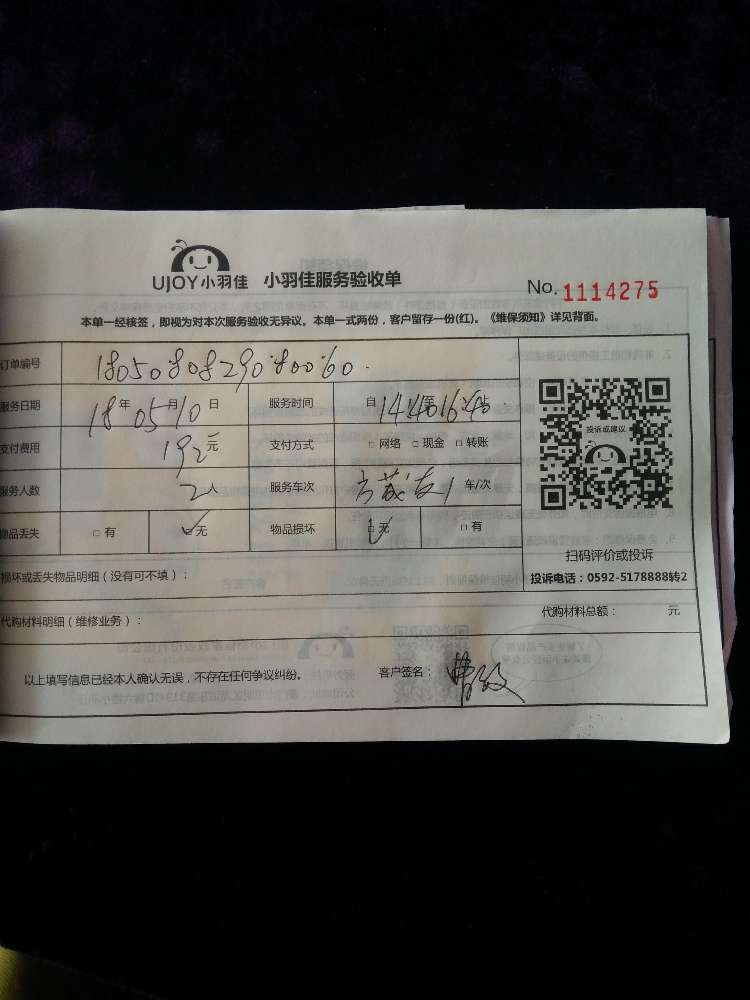 UJOY小羽佳 小羽佳服务验收单 No. 1114275
本单一经核签，即视为对本次服务验收无异议。本单一式两份，客户留存一份(红)。《维保须知》详见背面。
订单编号 18050808290800060
服务日期 18年05月10日 服务时间 自14:40至16:40
支付费用 192元 支付方式 □ 网络 □ 现金 □ 转账
服务人数 2人 服务车次 1 车/次
物品丢失 □ 有 □ 无 物品损坏 □ 无 □ 有
投诉或建议
扫码评价或投诉
投诉电话：0592-5178888转2
损坏或丢失物品明细（没有可不填）：
代购材料明细（维修业务）： 代购材料总额： 元
以上填写信息已经本人确认无误，不存在任何争议纠纷。 客户签名：